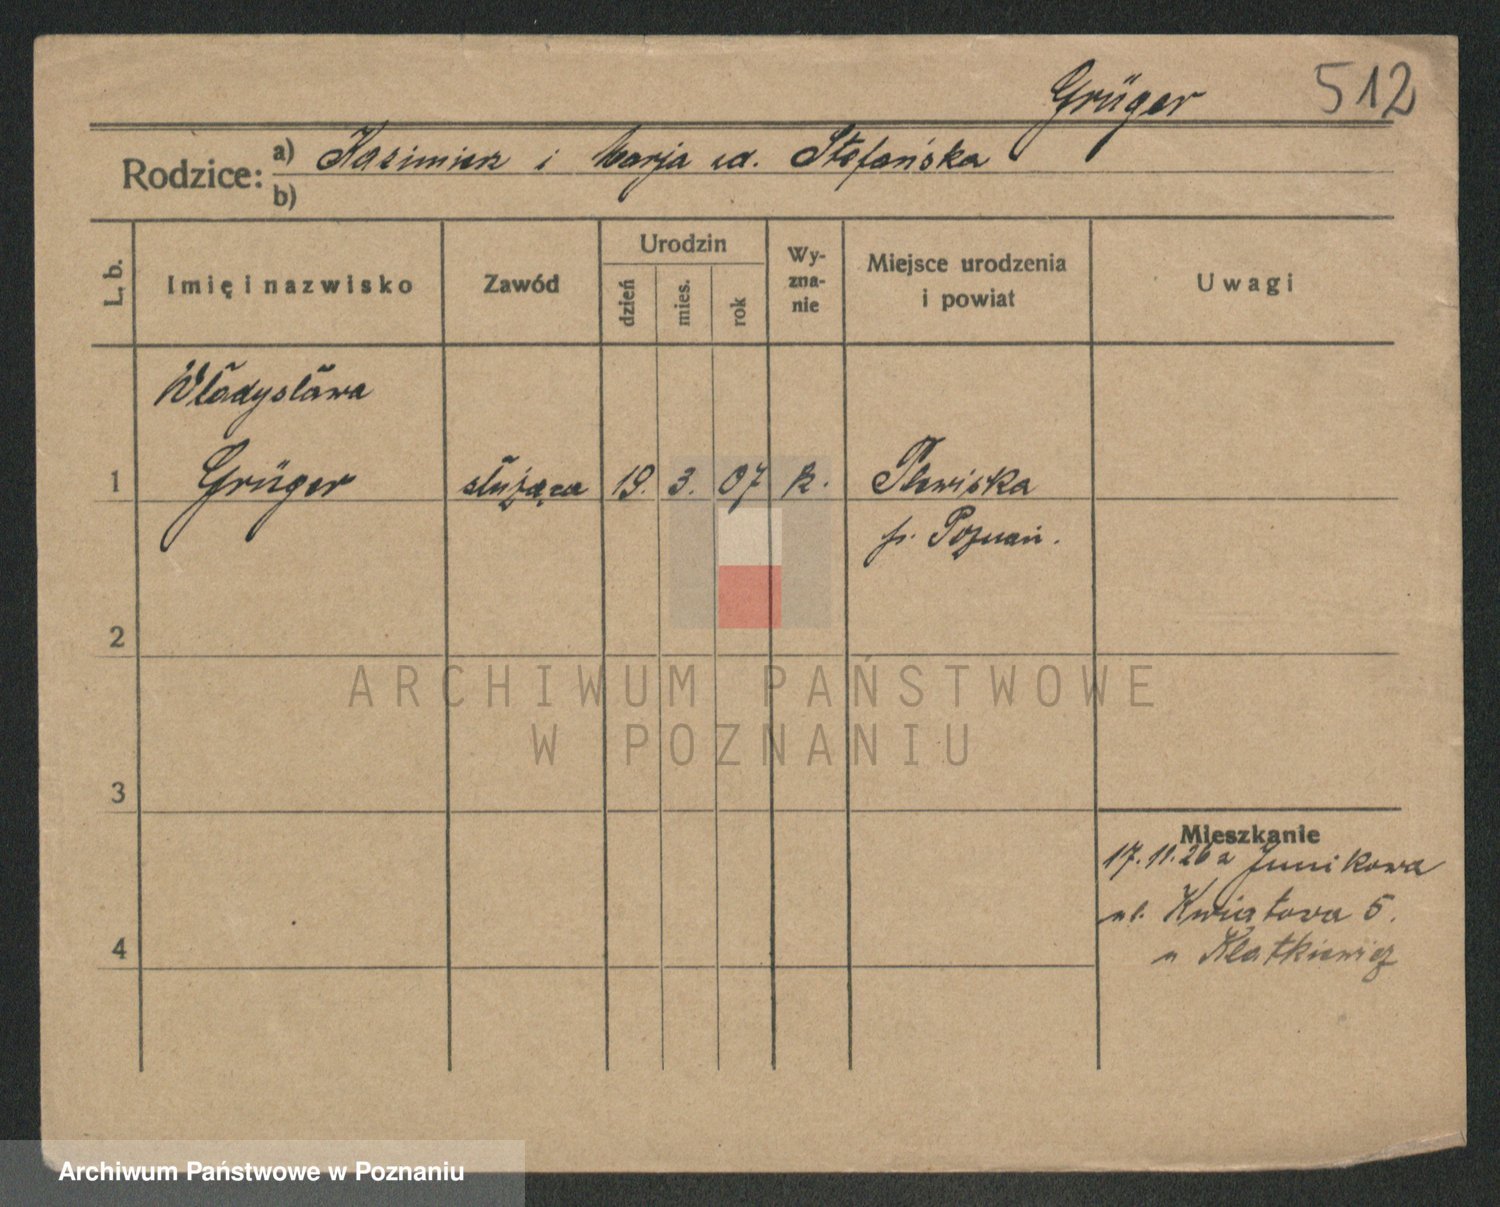 Grüger 512
Rodzice: a) Kazimierz i Marja zd. Stefańska
b)
L. b. Imię i nazwisko Zawód Urodzin dzień mies. rok Wy-zna-nie Miejsce urodzenia i powiat Uwagi
Władysława
1 Grüger służąca 19. 3. 07 k. Plewiska
p. Poznań.
2
ARCHIWUM PAŃSTWOWE
W POZNANIU
3
Mieszkanie
17.11.26 z Junikowa
ul. Kwiatowa 5.
4
u Klatkiewicz
Archiwum Państwowe w Poznaniu